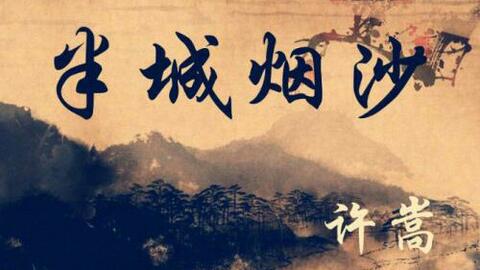 半城烟沙
许嵩